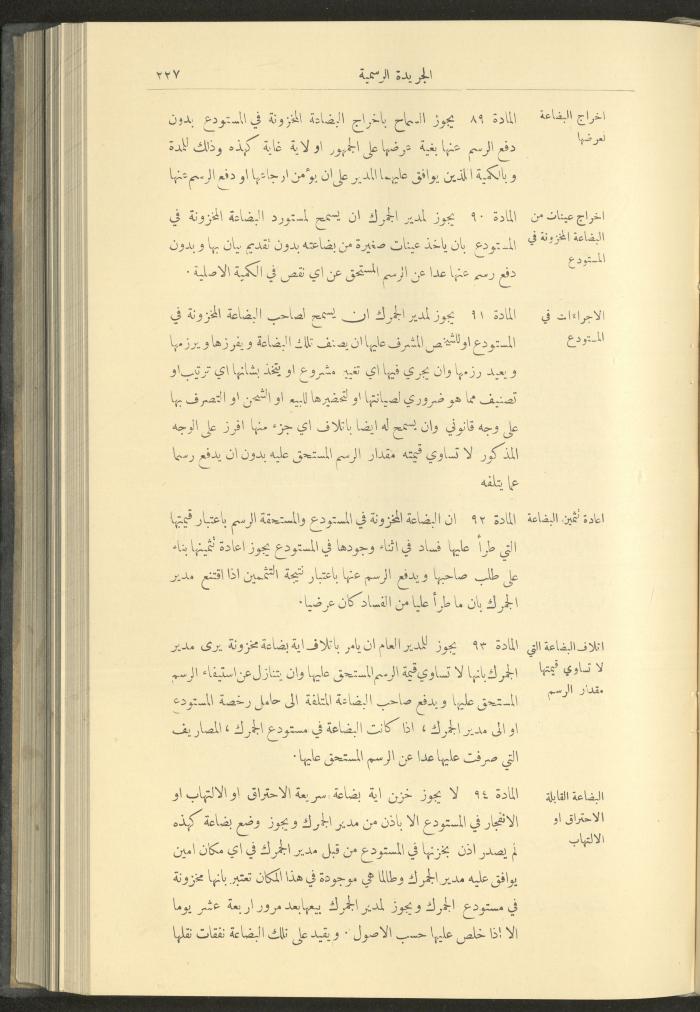 الجريدة الرسمية
٢٢٧
اخراج البضاعة
لعرضها
المادة ٨٩ يجوز السماح باخراج البضاعة المخزونة في المستودع بدون
دفع الرسم عنها بغية عرضها على الجمهور او لاية غاية كهذه وذلك للمدة
وبالكمية اللذين يوافق عليهما المدير على ان يؤمن ارجاعها او دفع الرسم عنها
اخراج عينات من
البضاعة المخزونة في
المستودع
المادة ٩٠ يجوز لمدير الجمرك ان يسمح لمستورد البضاعة المخزونة في
المستودع بان ياخذ عينات صغيرة من بضاعته بدون تقديم بيان بها وبدون
دفع رسم عنها عدا عن الرسم المستحق عن اي نقص في الكمية الاصلية .
الاجراءات في
المستودع
المادة ٩١ يجوز لمدير الجمرك ان يسمح لصاحب البضاعة المخزونة في
المستودع او للشخص المشرف عليها ان يصنف تلك البضاعة ويفرزها ويرزمها
ويعيد رزمها وان يجري فيها اي تغيير مشروع او يتخذ بشانها اي ترتيب او
تصنيف مما هو ضروري لصيانتها او لتحضيرها للبيع او الشحن او التصرف بها
على وجه قانوني وان يسمح له ايضا باتلاف اي جزء منها افرز على الوجه
المذكور لا تساوي قيمته مقدار الرسم المستحق عليه بدون ان يدفع رسما
عما يتلفه
اعادة تثمين البضاعة
المادة ٩٢ ان البضاعة المخزونة في المستودع والمستحقة الرسم باعتبار قيمتها
التي طرأ عليها فساد في اثناء وجودها في المستودع يجوز اعادة تثمينها بناء
على طلب صاحبها ويدفع الرسم عنها باعتبار نتيجة التثمين اذا اقتنع مدير
الجمرك بان ما طرأ عليا من الفساد كان عرضيا .
اتلاف البضاعة التي
لا تساوي قيمتها
مقدار الرسم
المادة ٩٣ يجوز للمدير العام ان يامر باتلاف اية بضاعة مخزونة يرى مدير
الجمرك بانها لا تساوي قيمة الرسم المستحق عليها وان يتنازل عن استيفاء الرسم
المستحق عليها ويدفع صاحب البضاعة المتلفة الى حامل رخصة المستودع
او الى مدير الجمرك ، اذا كانت البضاعة في مستودع الجمرك ، المصاريف
التي صرفت عليها عدا عن الرسم المستحق عليها .
البضاعة القابلة
الاحتراق او
الالتهاب
المادة ٩٤ لا يجوز خزن اية بضاعة سريعة الاحتراق او الالتهاب او
الانفجار في المستودع الا باذن من مدير الجمرك ويجوز وضع بضاعة كهذه
لم يصدر اذن بخزنها في المستودع من قبل مدير الجمرك في اي مكان امين
يوافق عليه مدير الجمرك وطالما هي موجودة في هذا المكان تعتبر بانها مخزونة
في مستودع الجمرك ويجوز لمدير الجمرك بيعها بعد مرور اربعة عشر يوما
الا اذا خلص عليها حسب الاصول . ويقيد على تلك البضاعة نفقات نقلها